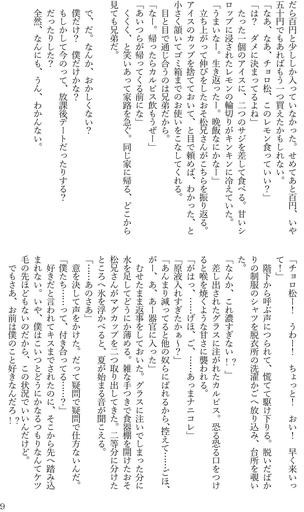 だら百円と少ししか入っていなかった。せめてあと百円、いや
五十円でもあればもう一つ買えたかもしれない。
「なぁ、なあ、チョロ松、このレモン食っていい？」
「は？　ダメに決まってるよね」
たった一個のアイスに、二つのサジを差して食べる。甘いシ
ロップに浸されたレモンの輪切りがキンキンに冷えていた。
「うまいなー。生き返ったー。晩飯なにかなー」
立ち上がって伸びをしたおそ松兄さんがこちらを振り返る。
アイスのカップを捨てておいて、と目で頼めば、わかった、と
小さく頷いてゴミ箱までのお使いをこなしてくれる。
目と目で通じ合うのは兄弟だから。
「あいつらが帰ってくる前にな」
「なー！　帰ったらカルピス飲もうぜー」
くくく、と笑いあって家路を急ぐ。同じ家に帰る、どこから
見ても兄弟だ。
で、だ、なんか、おかしくない？
僕だけ？　僕だけかな？
もしかして今のって、放課後デートだったりする？
だったりした？
全然、なんにも、うん、わかんない。
「チョロ松ー！　うわー！　ちょっと！　おい！　早く来いっ
て！」
階下から呼ぶ声につられて、慌てて駆け下りる。脱いだばか
りの制服のシャツを脱衣所の洗濯かごへ放り込み、台所を覗い
た。
「なんか、これ濃すぎない！？」
差し出されたグラスに注がれたカルピス。恐る恐る口をつけ
ると喉を焼くような甘さに襲われる。
「がっは……げほ、ご、……あっまナニコレ」
「原液入れすぎたかぁ～？」
「あんまり減ってると他のならにばれるから、控えて……ごほ、
がー、あ、あー器官に入った」
むせたまま返事をしておいた。グラスに注いでしまった分に
水を足してどうにか薄める。雑な手つきで食器棚を開けたおそ
松兄さんがマグカップを二つ取り出してきた。二等分に分けた
ところへ氷を浮かべると、夏が始まる音が聞こえる。
「……あのさあ」
意を決して声をかけた。だって疑問で疑問で仕方ないんだ。
「僕たち……って、付き合ってる……？」
好きだと言われてキスまでされたのに、そこから先へ踏み込
まれない。いや、僕はこいつとどうにかなるつもりなんてケツ
毛の先ほどもないのだから、この状況でいいんだけど。
でもさあ、お前は僕のこと好きなんだろ！！
9